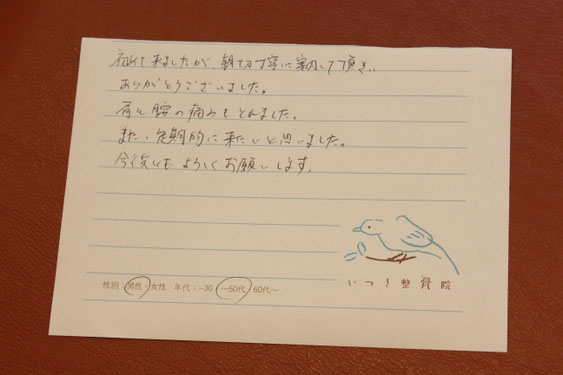 初めて来ましたが、親切丁寧に案内して頂き、
ありがとうございました。
肩と腰の痛みもとれました。
また、定期的に来たいと思いました。
今後ともよろしくお願いします。
性別：男性・女性 年代：~30 ~50代 60代~
いつき整骨院